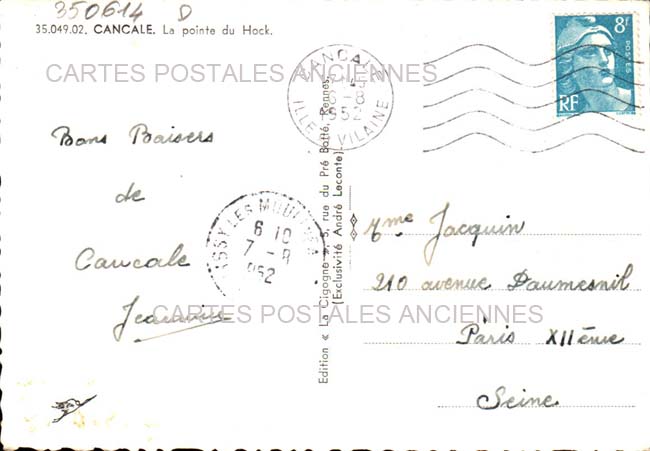 350614 D
35.049.02. CANCALE. La pointe du Hock.
CARTES POSTALES ANCIENNES
CANCALE
8 - 8
52
ILLE & VILAINE
8F
POSTES
RF
Bons Baisers
de
Cancale
Jeannine
ISSY LES MOULINEAUX
6 10
7 - 8
952
Edition « La Cigogne », 5, rue du Pré Botté, Rennes.
(Exclusivité André Leconte).
Mme Jacquin
210 avenue Daumesnil
Paris XIIème
Seine
CARTES POSTALES ANCIENNES